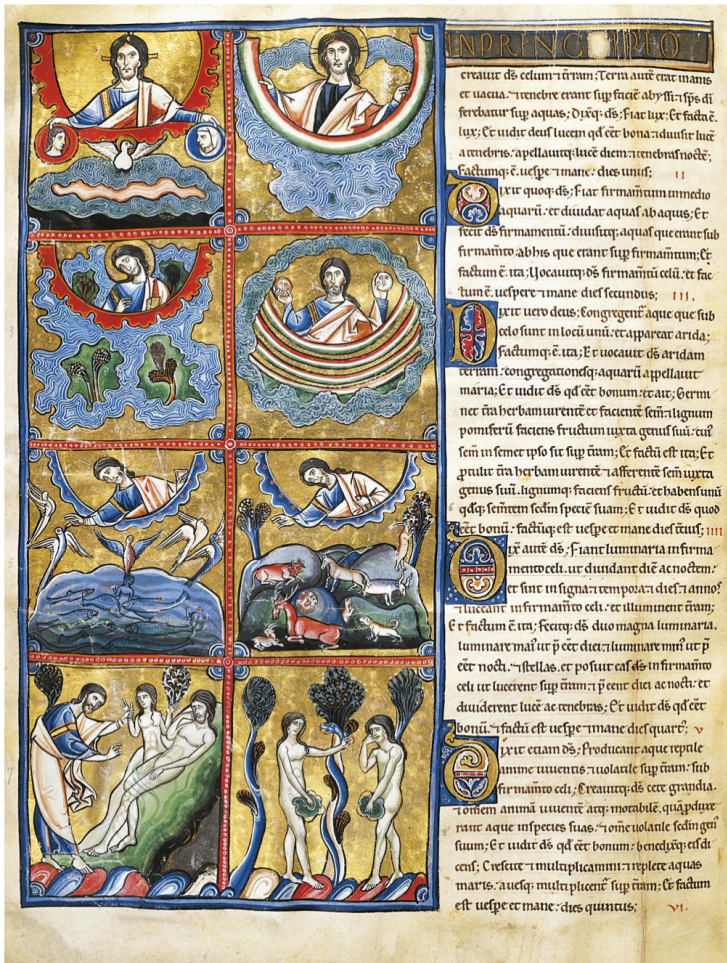 INPRINCIPIO
creauit d̄s celum ⁊ t̄ram; Terra autē erat inanis
et uacua. ⁊ tenebre erant sup̄ faciē abyssi: ⁊ sp̄s dī
ferebatur sup̄ aquas; Dixitq; d̄s; Fiat lux; Et facta ē.
lux; Et uidit deus lucem qd̄ cēt bona: ⁊ diuisit lucē
a tenebris: apellauitq; lucē diem: ⁊ tenebras noctē;
Factumq; ē. uesp̄e ⁊ mane: dies unus; II
Dixit quoq; d̄s; Fiat firmam̄tum in medio
aquarū: et diuidat aquas ab aquis; Et
fecit d̄s firmamentū: diuisitq; aquas que erant sub
firmam̄to: ab his que erant sup̄ firmam̄tum; Et
factum ē. ita; Uocauitq; d̄s firmam̄tū celū: et fac
tum ē. uespere ⁊ mane dies secundus; III.
Dixit uero deus; Congregent̄ aque que sub
celo sunt in locū unū: et appareat arida;
factumq; ē. ita; Et uocauit d̄s aridam
terram: congregationesq; aquarū appellauit
maria; Et uidit d̄s qd̄ cēt bonum: et ait; Germi
net t̄ra herbam uirentē et facientē sem̄: ⁊ lignum
pomiferū faciens fructum iuxta genus suū: cui'
sem̄ in semet ipso sit sup̄ t̄ram; Et factū est ita; Et
p̄tulit t̄ra herbam uirentē ⁊ afferentē sem̄ iuxta
genus suū. lignumq; faciens fructū: et habens unū
qd̄q; sem̄tem sed̄m speciē suam; Et uidit d̄s quod
cēt bonū: factūq; est uesp̄e et mane dies t̄cius; IIII
Dix̄ autē d̄s; Fiant luminaria in firma
mento celi. ut diuidant diē ac noctem:
et sint in signa ⁊ tempora ⁊ dies ⁊ annos
⁊ luceant in firmam̄to celi. et illuminent t̄ram;
Et factum ē. ita; Fecitq; d̄s duo magna luminaria.
luminare mai' ut p̄ cēt diei: ⁊ luminare min' ut p̄
cēt nocti. ⁊ stellas. et posuit eas d̄s in firmam̄to
celi ut lucerent sup̄ t̄ram: ⁊ p̄ cent diei ac nocti: et
diuiderent lucē ac tenebras; Et uidit d̄s qd̄ cēt
bonū. ⁊ factū est uesp̄e ⁊ mane dies quart'; V
Dixit etiam d̄s; Producant aque reptile
anime uiuentis ⁊ uolatile sup̄ t̄ram: sub
firmam̄to celi; Creauitq; d̄s cete grandia.
⁊ omem animā uiuentē atq; motabilē. quā p̄duxe
rant aque in species suas. ⁊ om̄e uolatile sed̄m gen'
suum; Et uidit d̄s qd̄ cēt bonum: benedix̄q; eis di
cens; Crescite ⁊ multiplicamini: ⁊ replete aquas
maris. auesq; multiplicent̄ sup̄ t̄ram; Et factum
est uesp̄e et mane: dies quintus; VI.